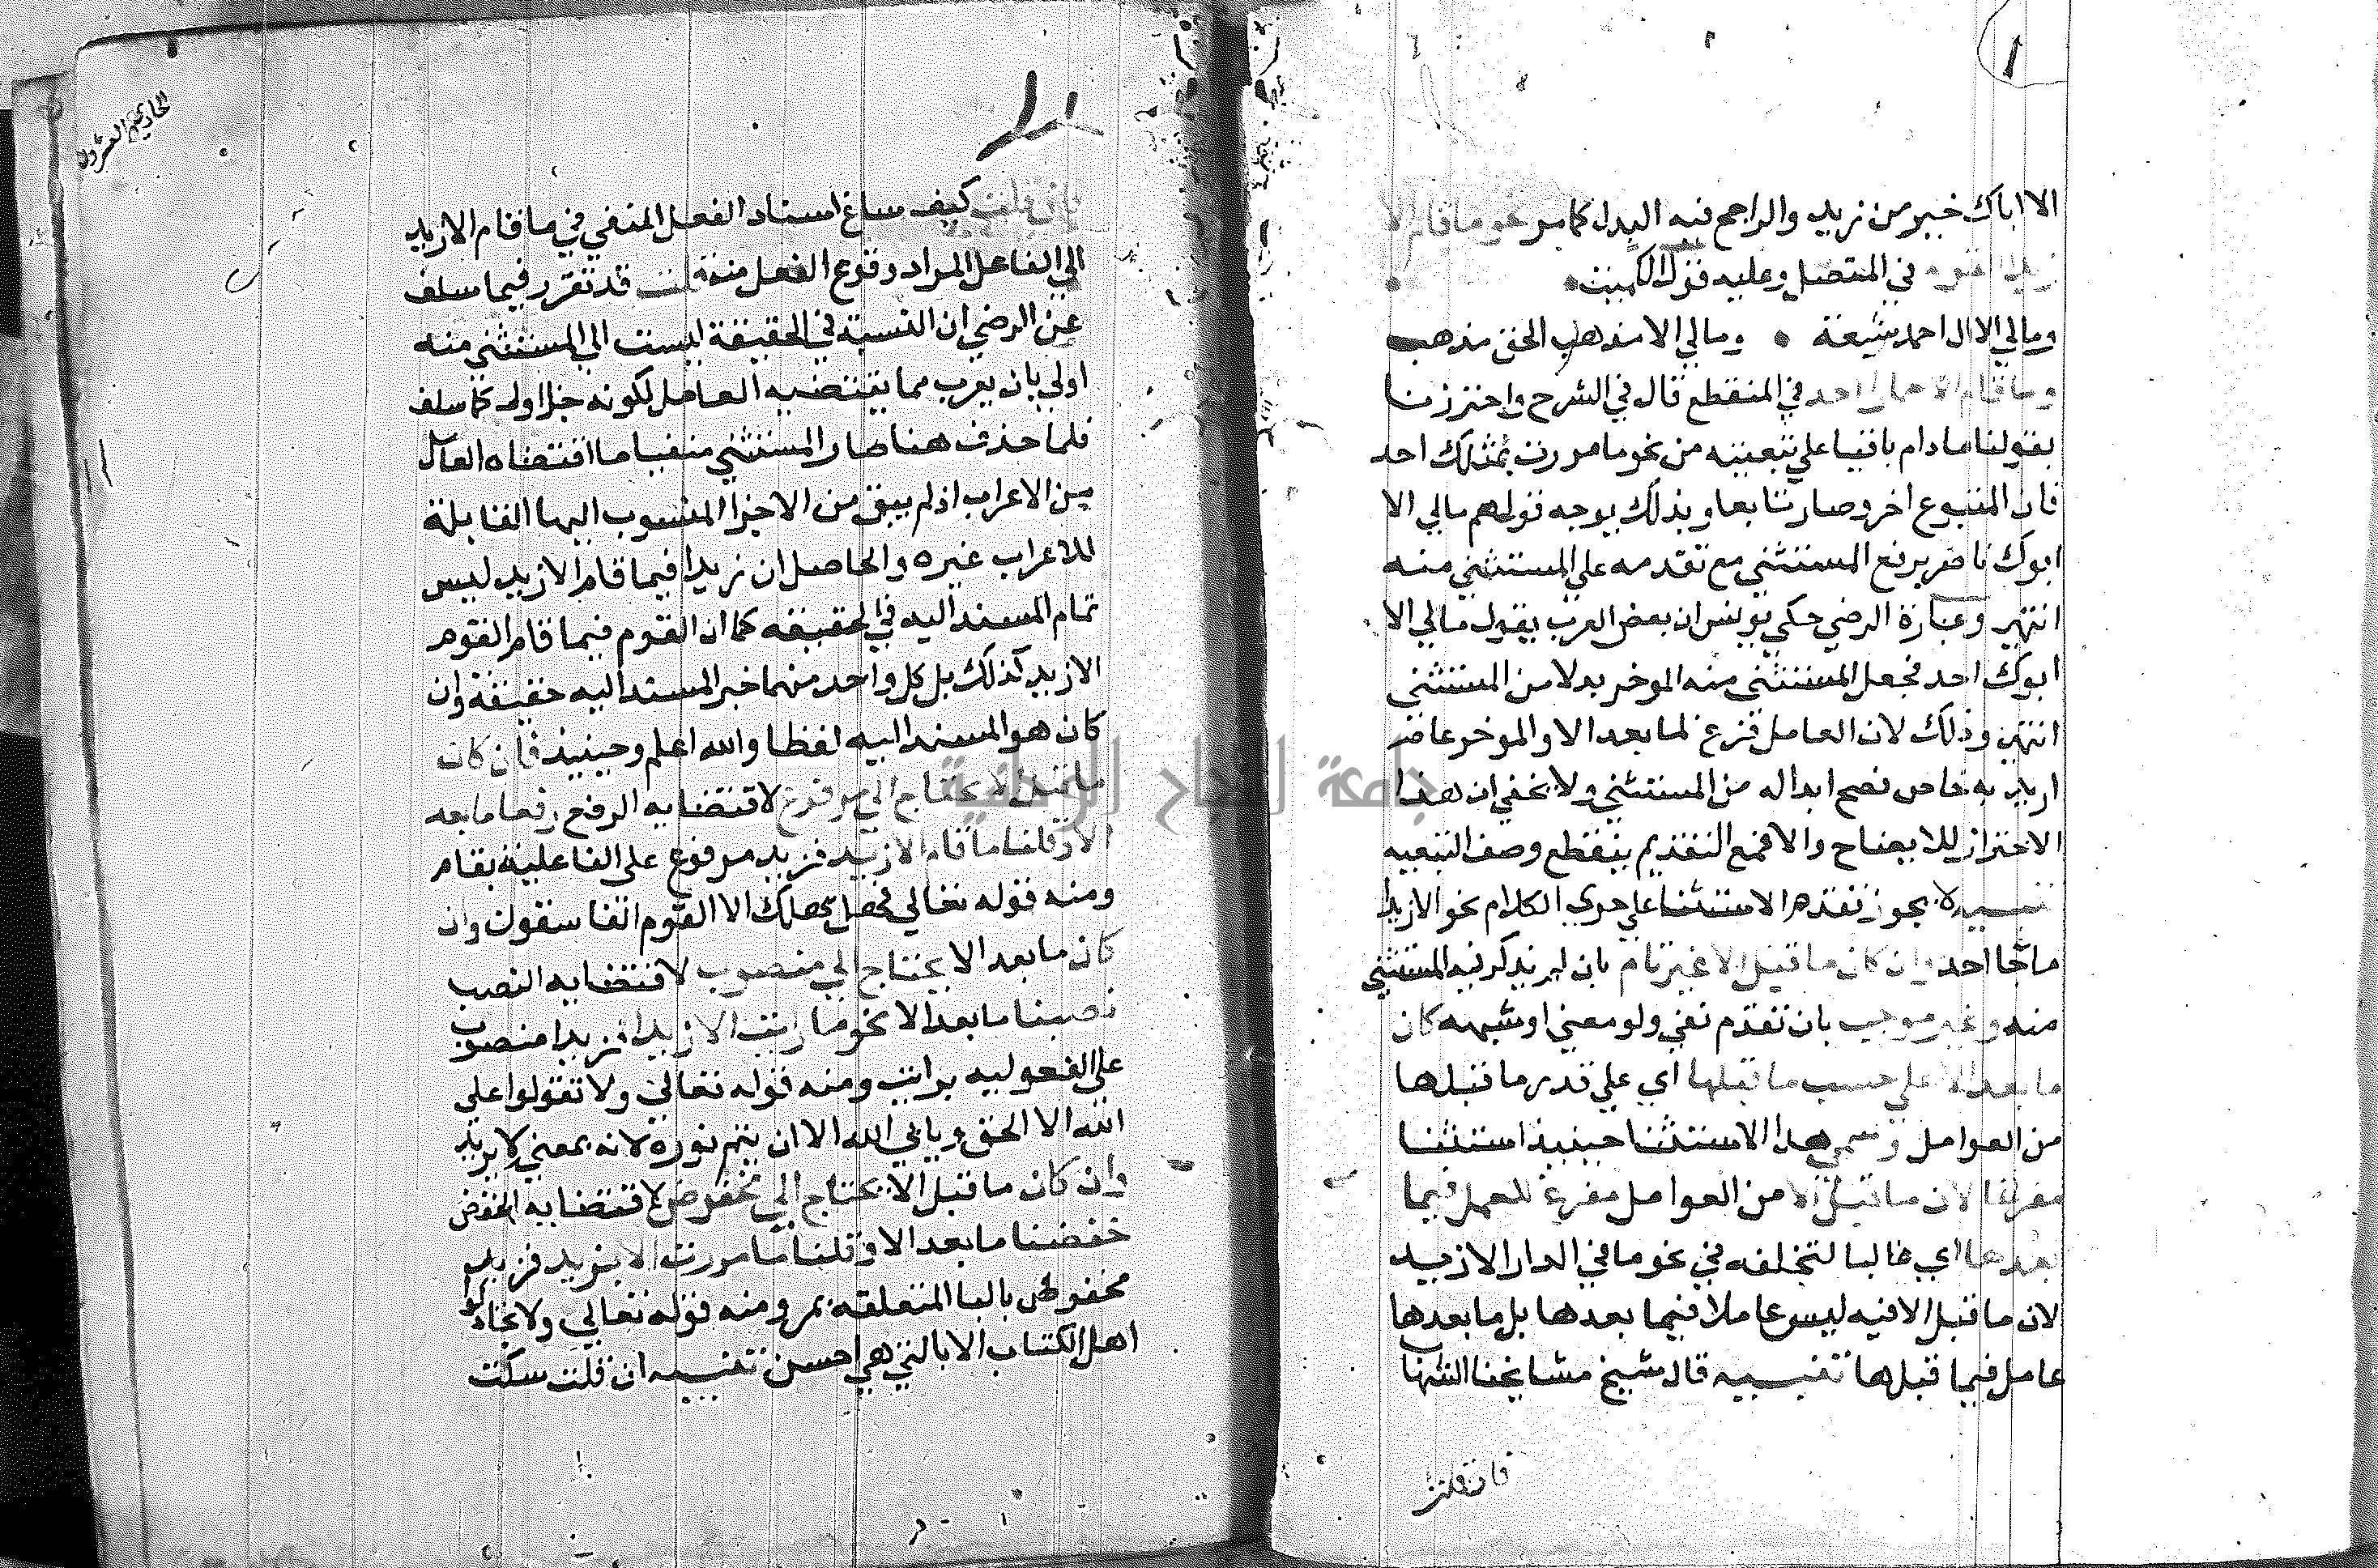 الا اباك خير من زيد والراجح فيه البدل كما مر نحو ما قام الا
في المتصل وعليه قول الكميت
ومالي الا ال احمد شيعة • ومالي الا مذهب الحق مذهب
وما قام الا حمار احد في المنقطع قال في الشرح واحترزنا
بقولنا ما دام باقيا على تبعيته من نحو ما مررت بمثلك احد
فان المتبوع اخر وصار تابعا وبذلك يوجه قولهم مالي الا
ابوك ناصر برفع المستثنى مع تقدمه على المستثنى منه
انتهى وعبارة الرضي حكى يونس ان بعض العرب يقول مالي الا
ابوك احد فجعل المستثنى منه الموخر بدلا من المستثنى
انتهى وذلك لان العامل فرغ لما بعد الا والموخر عام
اريد به خاص فصح ابداله من المستثنى ولا يخفى ان هذا
الاحتراز للايضاح والا فمع التقديم ينقطع وصف التبعيه
تنبيه لا يجوز تقدم الاستثنا على جزي الكلام نحو الا زيدا
ما جا احد وان كان ما قبل الا غير تام بان لم يذكر فيه المستثنى
منه وغير موجب بان تقدم نفي ولو معنى او شبهه كان
ما بعد الا على حسب ما قبلها اي على قدر ما قبلها
من العوامل وسمي هذا الاستثنا حينيذ استثنا
مفرغا لان ما قبل الا من العوامل مفرغ للعمل فيما
بعدها اي غالبا لتخلفه في نحو ما في الدار الا زيد
لان ما قبل الا فيه ليس عاملا فيما بعدها بل ما بعدها
عامل فيما قبلها تنبيه قال شيخ مشايخنا الشهاب
فان قلت
الحادي والعشرون
فان قلت كيف ساغ اسناد الفعل المنفي في ما قام الا زيد
الى الفاعل المراد وقوع الفعل منه قلت قد تقرر فيما سلف
عن الرضي ان النسبة في الحقيقة ليست الى المستثنى منه
اولى بان يعرب مما يقتضيه العامل لكونه جزا اول كما سلف
فلما حذف هنا صار المستثنى متعينا ما اقتضاه العامل
من الاعراب اذ لم يبق من الاجزا المنسوب اليها القابلة
للاعراب غيره والحاصل ان زيدا فيما قام الا زيد ليس
تمام المسند اليه في الحقيقه كما ان القوم فيما قام القوم
الا زيد كذلك بل كل واحد منهما جز المسند اليه حقيقة وان
كان هو المسند اليه لفظا والله اعلم وحينيذ فان كان
ما قبل الا يحتاج الى مرفوع لاقتضايه الرفع رفعا ما بعد
الا وقلنا ما قام الا زيد فزيد مرفوع على الفاعلية بقام
ومنه قوله تعالى فهل يهلك الا القوم الفاسقون وان
كان ما بعد الا يحتاج الى منصوب لاقتضايه النصب
نصبنا ما بعد الا نحو ما رايت الا زيدا فزيدا منصوب
على المفعوليه برايت ومنه قوله تعالى ولا تقولوا على
الله الا الحق ويابى الله الا ان يتم نوره لانه بمعنى لا يريد
وان كان ما قبل الا يحتاج الى مخفوض لاقتضايه الخفض
خفضنا ما بعد الا وقلنا ما مررت الا بزيد فزيد
مخفوض بالبا المتعلقه بمر ومنه قوله تعالى ولا تجادلوا
اهل الكتاب الا بالتي هي احسن تنبيه ان قلت سكت
جامعة النجاح الوطنية